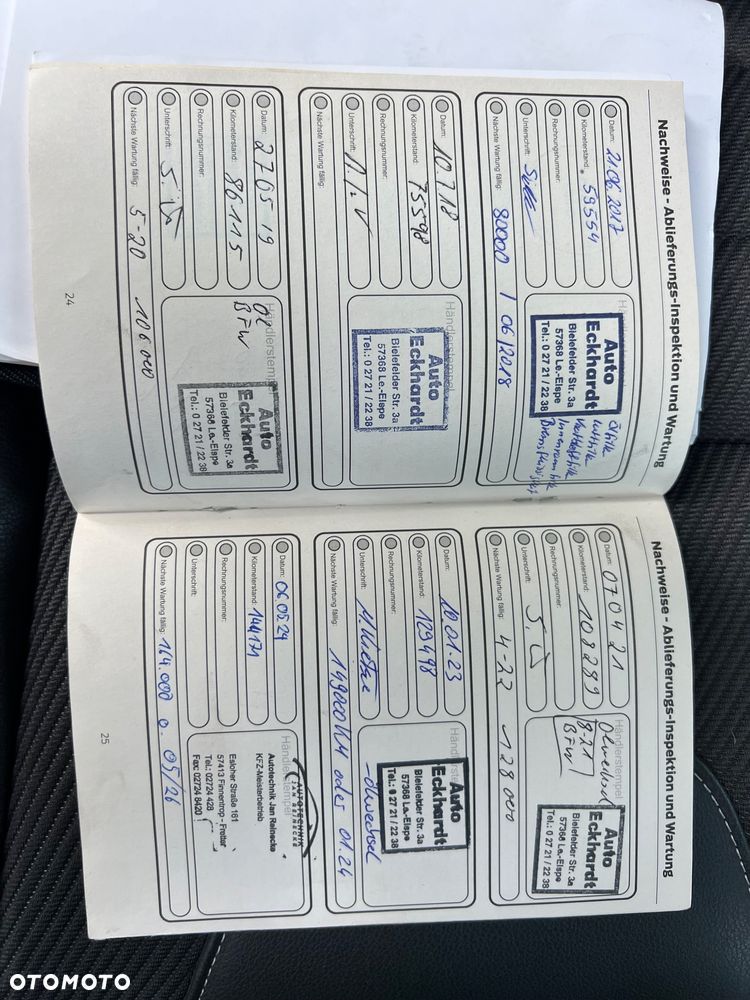 Nachweise - Ablieferungs-Inspektion und Wartung
Datum: 21.06.2017
Kilometerstand: 59554
Rechnungsnummer:
Unterschrift:
Nächste Wartung fällig: 80000 / 06/2018
Auto
Eckhardt
Bielefelder Str. 3a
57368 Le.-Elspe
Tel.: 0 27 21 / 22 38
Ölfilter
Luftfilter
Innenraumfilter
Bremsflüssigkeit
Datum: 10.7.18
Kilometerstand: 75598
Rechnungsnummer:
Unterschrift:
Nächste Wartung fällig:
Händlerstempel
Auto
Eckhardt
Bielefelder Str. 3a
57368 Le.-Elspe
Tel.: 0 27 21 / 22 38
Datum: 27 05 19
Kilometerstand: 86115
Rechnungsnummer:
Unterschrift:
Nächste Wartung fällig: 5-20 106 000
Händlerstempel
Öl
BFW
Auto
Eckhardt
Bielefelder Str. 3a
57368 Le.-Elspe
Tel.: 0 27 21 / 22 38
24
Nachweise - Ablieferungs-Inspektion und Wartung
Datum: 07 04 21
Kilometerstand: 108289
Rechnungsnummer:
Unterschrift:
Nächste Wartung fällig: 4-22 128 000
Händlerstempel
Oelwechsel
8-21
BFW
Auto
Eckhardt
Bielefelder Str. 3a
57368 Le.-Elspe
Tel.: 0 27 21 / 22 38
Datum: 10.01.23
Kilometerstand: 129498
Rechnungsnummer:
Unterschrift:
Nächste Wartung fällig: 149000 KM oder 01.24
Händlerstempel
Auto
Eckhardt
Bielefelder Str. 3a
57368 Le.-Elspe
Tel.: 0 27 21 / 22 38
-Ölwechsel
Datum: 06.05.24
Kilometerstand: 144171
Rechnungsnummer:
Unterschrift:
Nächste Wartung fällig: 164.000 o. 05/26
Händlerstempel
AUTOTECHNIK
JAN REINECKE
Autotechnik Jan Reinecke
KFZ-Meisterbetrieb
Esloher Straße 161
57413 Finnentrop - Fretter
Tel.: 02724 428
Fax: 02724 8420
25
OTOMOTO